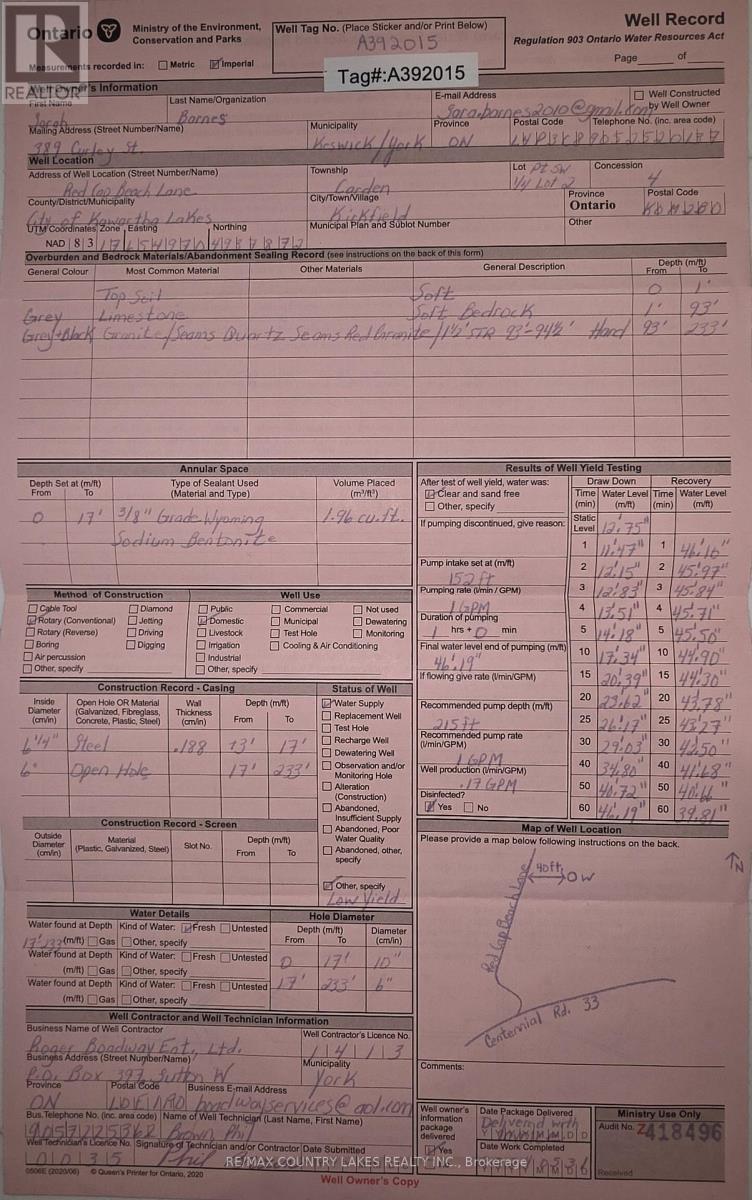 Ontario
Ministry of the Environment,
Conservation and Parks
Well Tag No. (Place Sticker and/or Print Below)
A392015
Tag#:A392015
Well Record
Regulation 903 Ontario Water Resources Act
Page of
Measurements recorded in: Metric Imperial
REALTOR
Well Owner's Information
First Name Last Name/Organization E-mail Address Well Constructed by Well Owner
Sarah Barnes sara.barnes2010@gmail.com
Mailing Address (Street Number/Name) Municipality Province Postal Code Telephone No. (inc. area code)
389 Curley St. Keswick/York ON
Well Location
Address of Well Location (Street Number/Name) Township Lot Concession
Red Cap Beach Lane Carden Pt SW 1/4 Lot 2 4
County/District/Municipality City/Town/Village Province Postal Code
City of Kawartha Lakes Kirkfield Ontario K0M2B0
UTM Coordinates Zone Easting Northing Municipal Plan and Sublot Number Other
NAD 83
Overburden and Bedrock Materials/Abandonment Sealing Record (see instructions on the back of this form)
General Colour Most Common Material Other Materials General Description Depth (m/ft) From To
Top Soil Soft 0 1'
Grey Limestone Soft Bedrock 1' 93'
Grey+Black Granite/Seams Quartz Seams Red Granite/1½' STR 93'-94½' Hard 93' 233'
Annular Space
Depth Set at (m/ft) From To Type of Sealant Used (Material and Type) Volume Placed (m³/ft³)
0 17' 3/8" Grade Wyoming 1.96 cu.ft.
Sodium Bentonite
Method of Construction
Cable Tool Diamond
Rotary (Conventional) Jetting
Rotary (Reverse) Driving
Boring Digging
Air percussion
Other, specify
Well Use
Public Commercial Not used
Domestic Municipal Dewatering
Livestock Test Hole Monitoring
Irrigation Cooling & Air Conditioning
Industrial
Other, specify
Construction Record - Casing
Inside Diameter (cm/in) Open Hole OR Material (Galvanized, Fibreglass, Concrete, Plastic, Steel) Wall Thickness (cm/in) Depth (m/ft) From To
6¼" Steel .188 +3' 17'
6" Open Hole 17' 233'
Status of Well
Water Supply
Replacement Well
Test Hole
Recharge Well
Dewatering Well
Observation and/or Monitoring Hole
Alteration (Construction)
Abandoned, Insufficient Supply
Abandoned, Poor Water Quality
Abandoned, other, specify
Other, specify
Low Yield
Construction Record - Screen
Outside Diameter (cm/in) Material (Plastic, Galvanized, Steel) Slot No. Depth (m/ft) From To
Water Details
Water found at Depth Kind of Water: Fresh Untested
17'-233' (m/ft) Gas Other, specify
Water found at Depth Kind of Water: Fresh Untested
(m/ft) Gas Other, specify
Water found at Depth Kind of Water: Fresh Untested
(m/ft) Gas Other, specify
Hole Diameter
Depth (m/ft) From To Diameter (cm/in)
0 17' 10"
17' 233' 6"
Well Contractor and Well Technician Information
Business Name of Well Contractor Well Contractor's Licence No.
Roger Boadway Ent., Ltd. 1 4 1 1 3
Business Address (Street Number/Name) Municipality
P.O. Box 397, Sutton W York
Province Postal Code Business E-mail Address
ON L0E1R0 boadwayservices@aol.com
Bus.Telephone No. (inc. area code) Name of Well Technician (Last Name, First Name)
9057225362 Brown, Phil
Well Technician's Licence No. Signature of Technician and/or Contractor Date Submitted
0506E (2020/06) © Queen's Printer for Ontario, 2020
Results of Well Yield Testing
After test of well yield, water was:
Clear and sand free
Other, specify
If pumping discontinued, give reason:
Pump intake set at (m/ft)
152 ft
Pumping rate (l/min / GPM)
1 GPM
Duration of pumping
1 hrs + 0 min
Final water level end of pumping (m/ft)
46.19"
If flowing give rate (l/min/GPM)
Recommended pump depth (m/ft)
215 ft
Recommended pump rate (l/min/GPM)
1 GPM
Well production (l/min/GPM)
.17 GPM
Disinfected?
Yes No
Draw Down Recovery
Time (min) Water Level (m/ft) Time (min) Water Level (m/ft)
Static Level
1 11.47" 1 46.16"
2 12.15" 2 45.97"
3 12.83" 3 45.84"
4 13.51" 4 45.71"
5 14.18" 5 45.50"
10 17.34" 10 44.90"
15 20.39" 15 44.30"
20 23.62" 20 43.78"
25 26.17" 25 43.27"
30 29.03" 30 42.50"
40 34.80" 40 41.68"
50 40.72" 50 40.66"
60 46.19" 60 39.81"
Map of Well Location
Please provide a map below following instructions on the back.
N
40ft
OW
Red Cap Beach Lane
Centennial Rd. 33
Comments:
Well owner's information package delivered
Yes
No
Date Package Delivered
Delivered with
Date Work Completed
Ministry Use Only
Audit No. Z418496
Received
RE/MAX COUNTRY LAKES REALTY INC., Brokerage
Well Owner's Copy